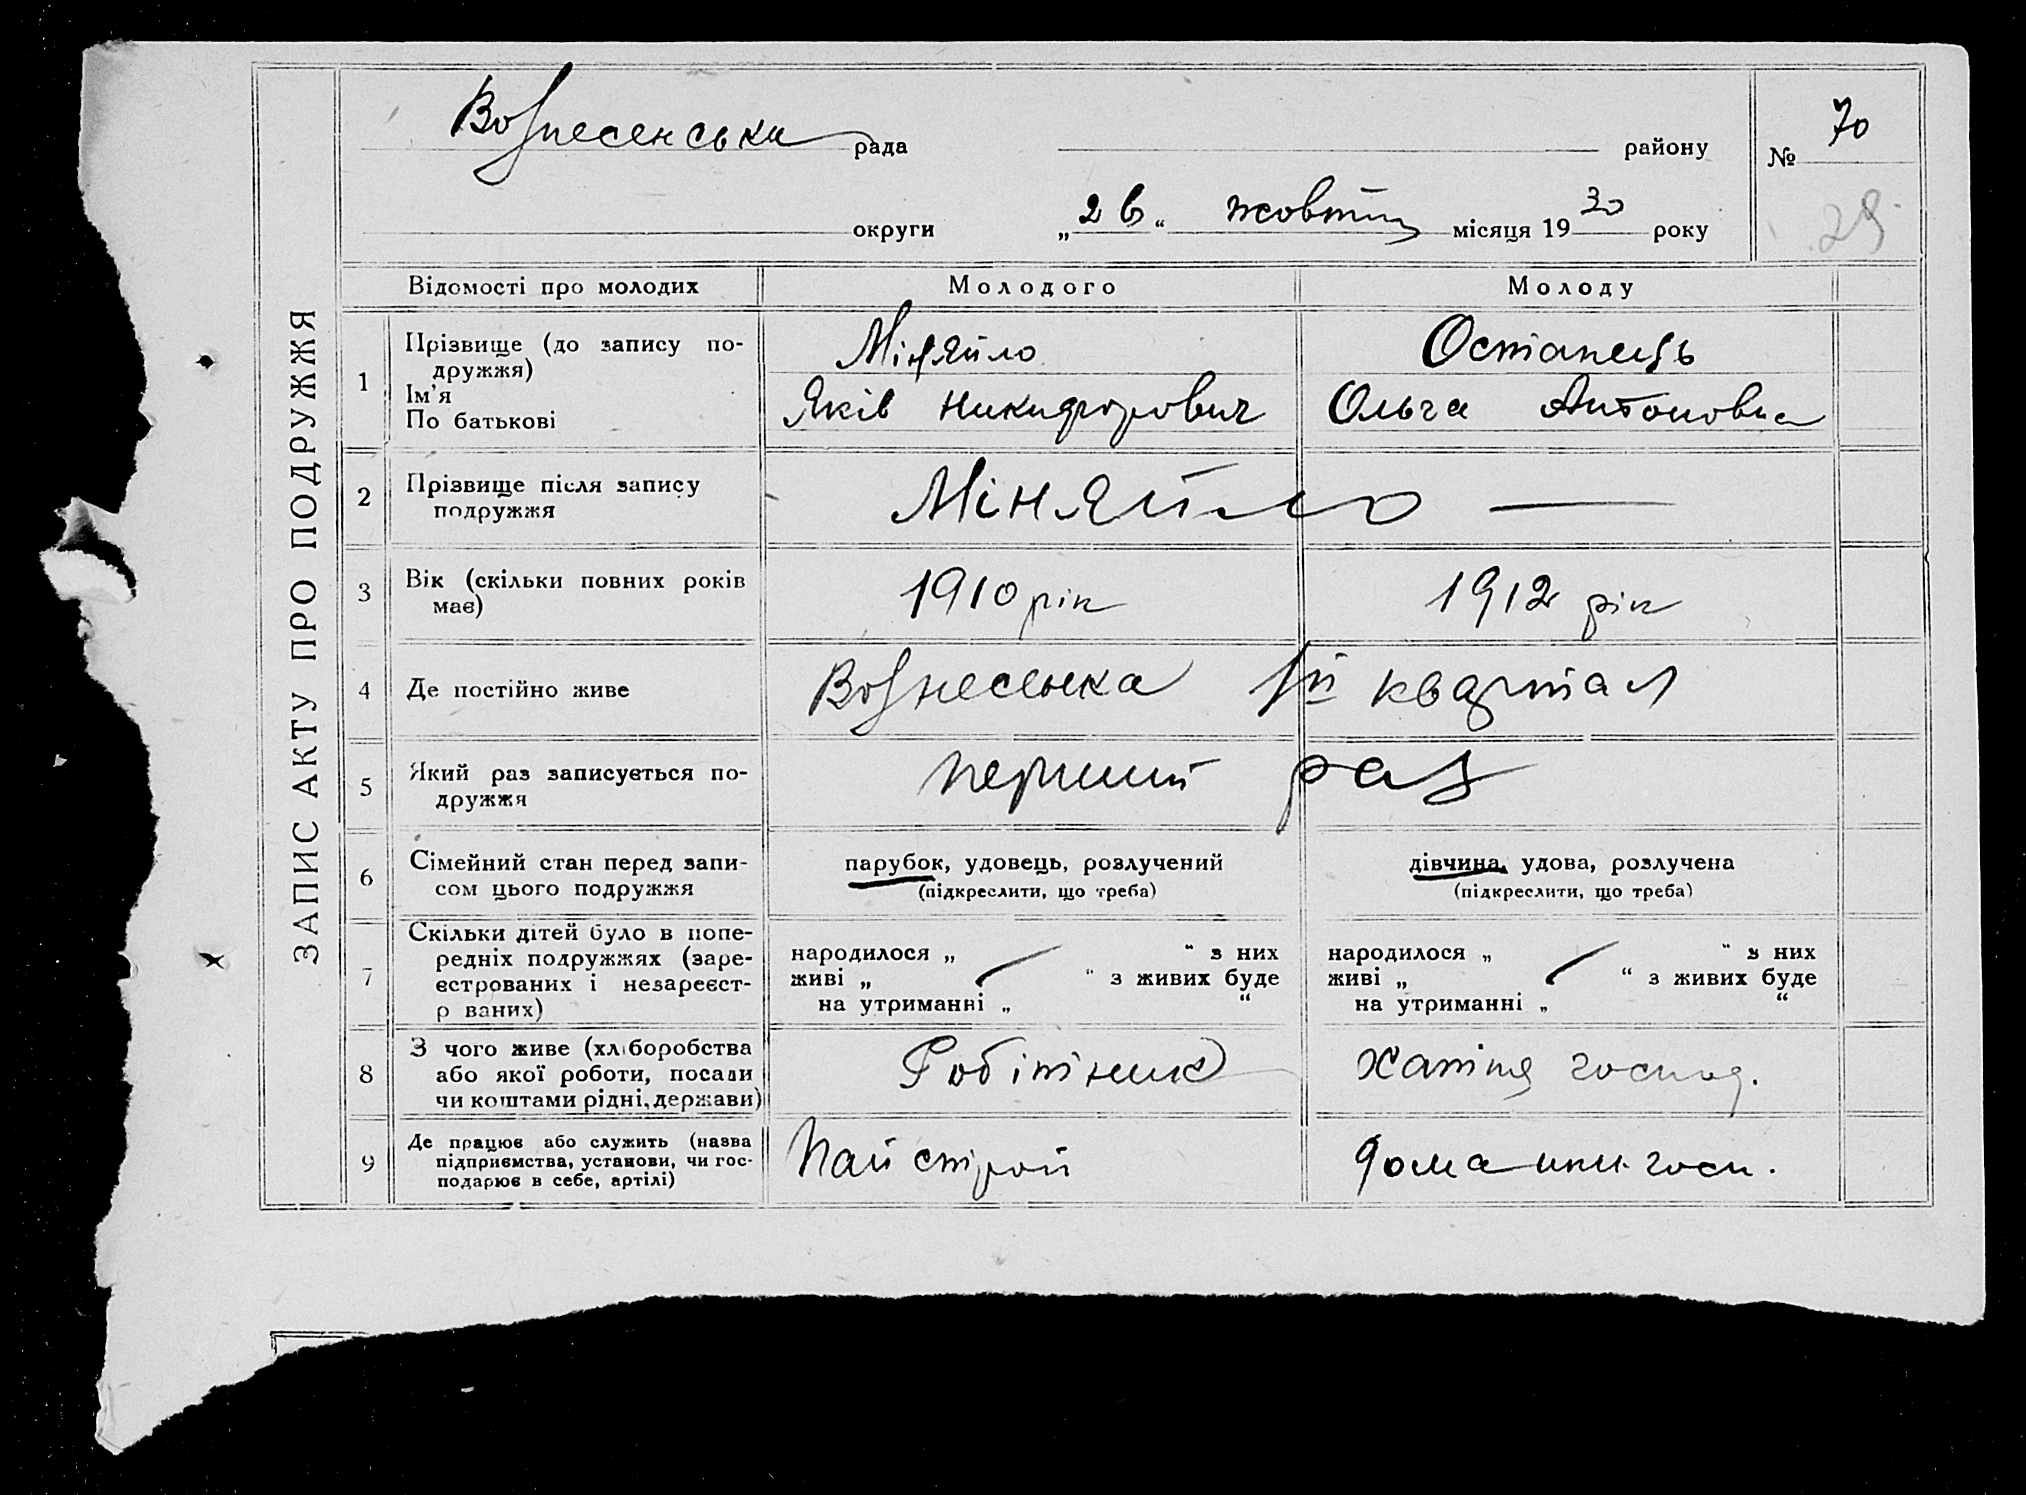 ЗАПИС АКТУ ПРО ПОДРУЖЖЯ
Вознесенська рада району № 70
округи „26“ жовтня місяця 1930 року 29
Відомості про молодих Молодого Молоду
1 Прізвище (до запису по-
дружжя)
Ім’я
По батькові
Міняйло
Яків Никифорович
Остапець
Ольга Антоновна
2 Прізвище після запису
подружжя
Міняйло —
3 Вік (скільки повних років
має)
1910 рік
1912 рік
4 Де постійно живе
Вознесенка 1й квартал
5 Який раз записується по-
дружжя
перший раз
6 Сімейний стан перед запи-
сом цього подружжя
парубок, удовець, розлучений
(підкреслити, що треба)
дівчина, удова, розлучена
(підкреслити, що треба)
7 Скільки дітей було в попе-
редніх подружжях (заре-
єстрованих і незареєст-
р ваних)
народилося „ “ з них
живі „ “ з живих буде
на утриманні „ “
народилося „ “ з них
живі „ “ з живих буде
на утриманні „ “
8 З чого живе (хліборобства
або якої роботи, посади
чи коштами рідні, держави)
Робітник
Хатня господ.
9 Де працює або служить (назва
підприємства, установи, чи гос-
подарює в себе, артілі)
Пайстрой
домашн. госп.